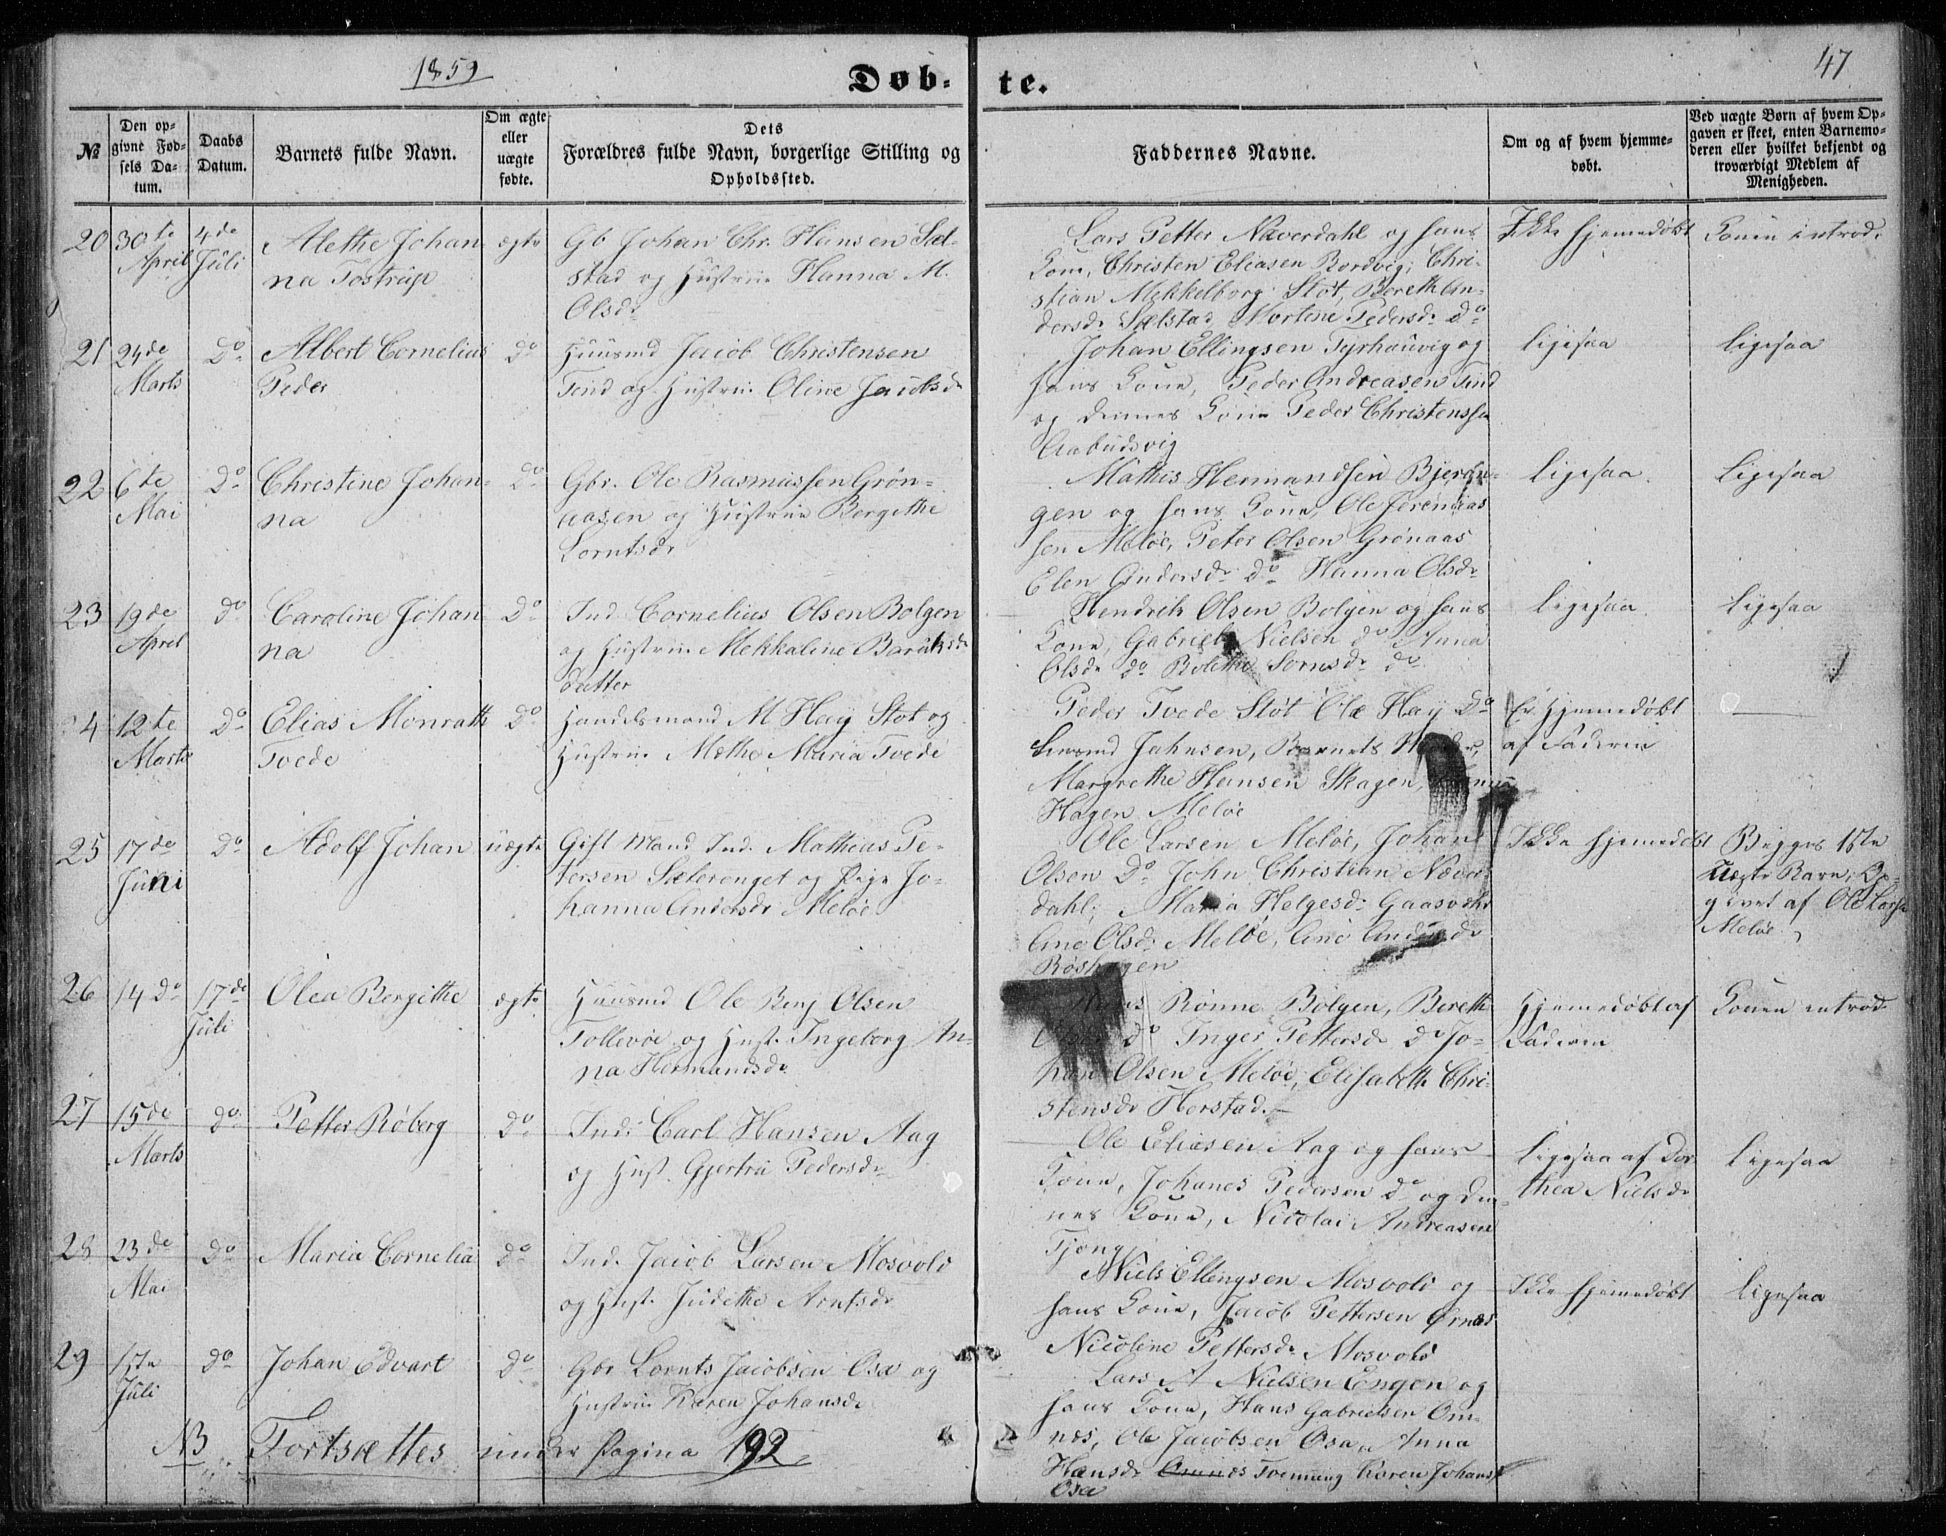 1859
47
Døb- te.
№
Den opgivne Fødsels Datum.
Daabs Datum.
Barnets fulde Navn.
Om ægte eller uægte fødte.
Dets Forældres fulde Navn, borgerlige Stilling og Opholdssted.
Faddernes Navne.
Om og af hvem hjemmedøbt.
Ved uægte Børn af hvem Opgaven er skeet, enten Barnemoderen eller hvilket bekjendt og troværdigt Medlem af Menigheden.
20 30te April 4de Juli
Alethe Johan
na Tostrup
ægte
Gb Johan Chr. Hansen Sæl-
stad og Hustrue Hanna M.
Olsdr
Lars Petter Næverdahl og hans
Kone, Christen Eliasen Bordvig, Chri-
stian Mekkelborg Støt, Bereth An-
dersdr Sælstad, Mortine Pedersdr do
Ikke hjemedøbt
Konen introd.
21 24de Marts Do
Albert Cornelius
Peder
Do
Huusmd Jacob Christensen
Tind og Hustrue Oline Jacobsdr
Johan Ellingsen Tyrhaüvig og
hans Kone, Peder Andreasen Tind
og dennes Kone Peder Christenssen
Aabudsvig
ligesaa
ligesaa
22 6te Mai Do
Christine Johan-
na
Do
Gbr. Ole Rasmussen Grøn-
aasen og Hustrue Bergithe
Lorntsdr
Mathis Hermandsen Bjeran-
gen og hans Kone, Ole Jeremias
sen Meløe, Peter Olsen Grønaas
Elen Andersdr do Hanna Olsdr
ligesaa
ligesaa
23 19de April do
Caroline Johan
na
Do
Ind Cornelius Olsen Bolgen
og Hustrue Mekkaline Baraksdr
datter
Hendrik Olsen Bolgen og hans
Kone, Gabriel Nielsen do Anna
Olsdr do Bolethe Sørnsdr do
ligesaa
ligesaa
4 12te Marts Do
Elias Monrath
Tvede
Do
Handelsmand M Hay Støt og
Hustrue Methe Maria Tvede
Peder Tvede Støt Ole Hay Do
Jahnsen, Barnets Moder,
Margrethe Hansen Skagen,
Hagen Meløe
Er Hjemmedøbt
af Faderen
25 17de Juni Do
Adolf Johan
uægte
Gift Mand Ind. Mathias Pe-
tersen Sæterenget og Pige Jo-
hanna Andersdr Meløe
Ole Larsen Meløe, Johan
Olsen Do John Christian Næver
dahl, Maria Helgesdr Gaasvær
Ane Olsdr Meløe, Ane Andersdr
Røshagen
Ikke hjemedøbt
Begges 1ste
Uægte Barn, Op-
givet af Ole Larsen
Meløe
26 14 do 17de Juli
Olea Bergithe
ægte
Huusmd Ole Benj Olsen
Tollevøe og Hust. Ingeborg An-
na Hermandsdr
Hans Rønne Bolgen, Bereth
Olsdr do Inger Pettersdr do Jo-
han Olsen Meløe, Elisabeth Chri-
stensdr Herstad.
Hjemedøbt af
Faderen
Konen introd
27 15de Marts do
Petter Røberg
do
Ind. Carl Hansen Aag
og Hust. Gjertru Pedersdr
Ole Eliasen Aag og hans
Kone, Johanes Pedersen do og den
nes Kone, Nicolai Andreasen
Tjong
ligesaa af Dor
thea Nielsdr
ligesaa
28 23de Mai Do
Maria Cornelia
do
Ind. Jacob Larsen Mosvold
og Hust. Judithe Arntsdr
Niels Ellingsen Mosvold og
hans Kone, Jacob Pettersen Ørnæs
Nicoline Pettersdr Mosvold
Ikke hjemedøbt
ligesaa
29 1ste Juli do
Johan Edvart
do
Gbr Lornts Jacobsen Osa og
Hustrue Karen Johansdr
Lars A Nielsen Engen og
hans Kone, Hans Gabrielsen Ørn-
næs, Ole Jacobsen Osa, Anna
Hansdr Ørnnæs Karen Johansdr
Osa
NB Fortsættes under Pagina 192